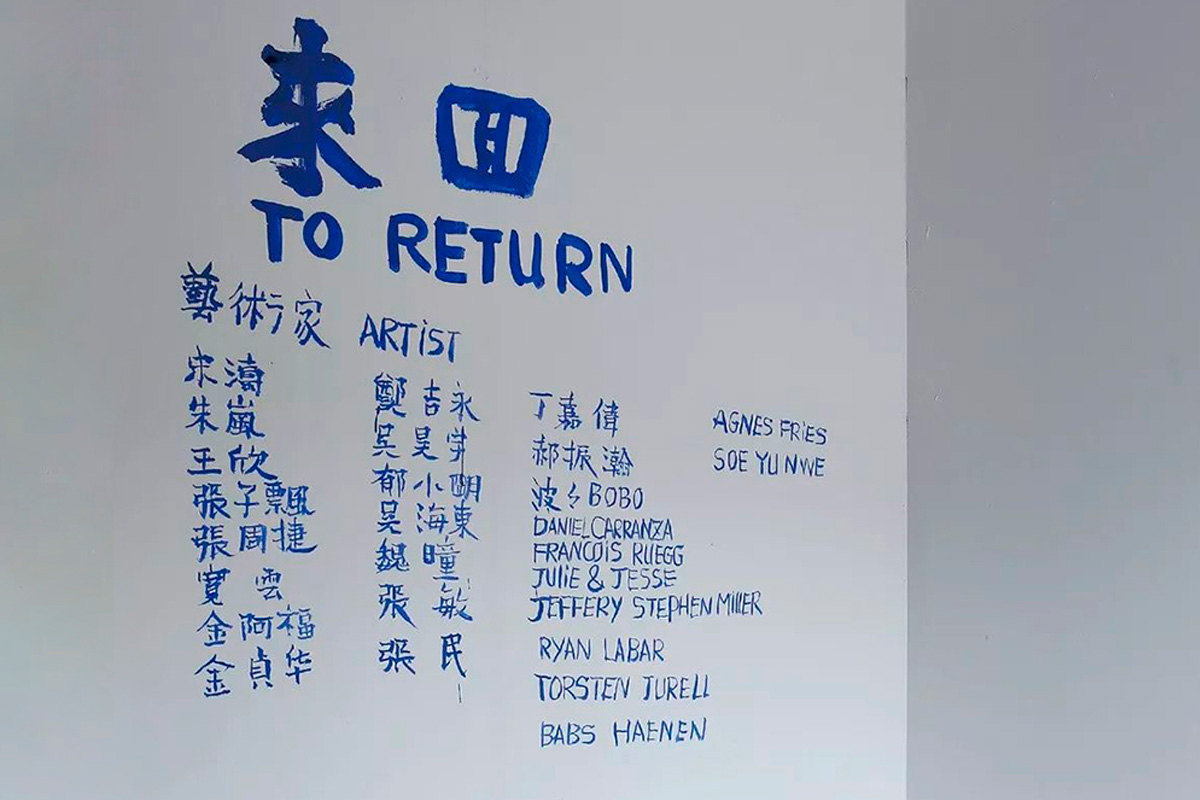 來回
TO RETURN
藝術家 ARTiST
宋濤
朱嵐
王欣
張子飄
張周捷
寬雲
金阿福
金貞华
鄭吉永
吴昊宇
郁小
吴海東
魏瞳
張敏
張民
丁嘉偉
郝振瀚
波々BOBO
DANIEL CARRANZA
FRANCOiS RUEGG
JULiE & JESSE
JEFFERY STEPHEN MILLER
RYAN LABAR
TORSTEN JURELL
BABS HAENEN
AGNES FRiES
SOE YUNWE